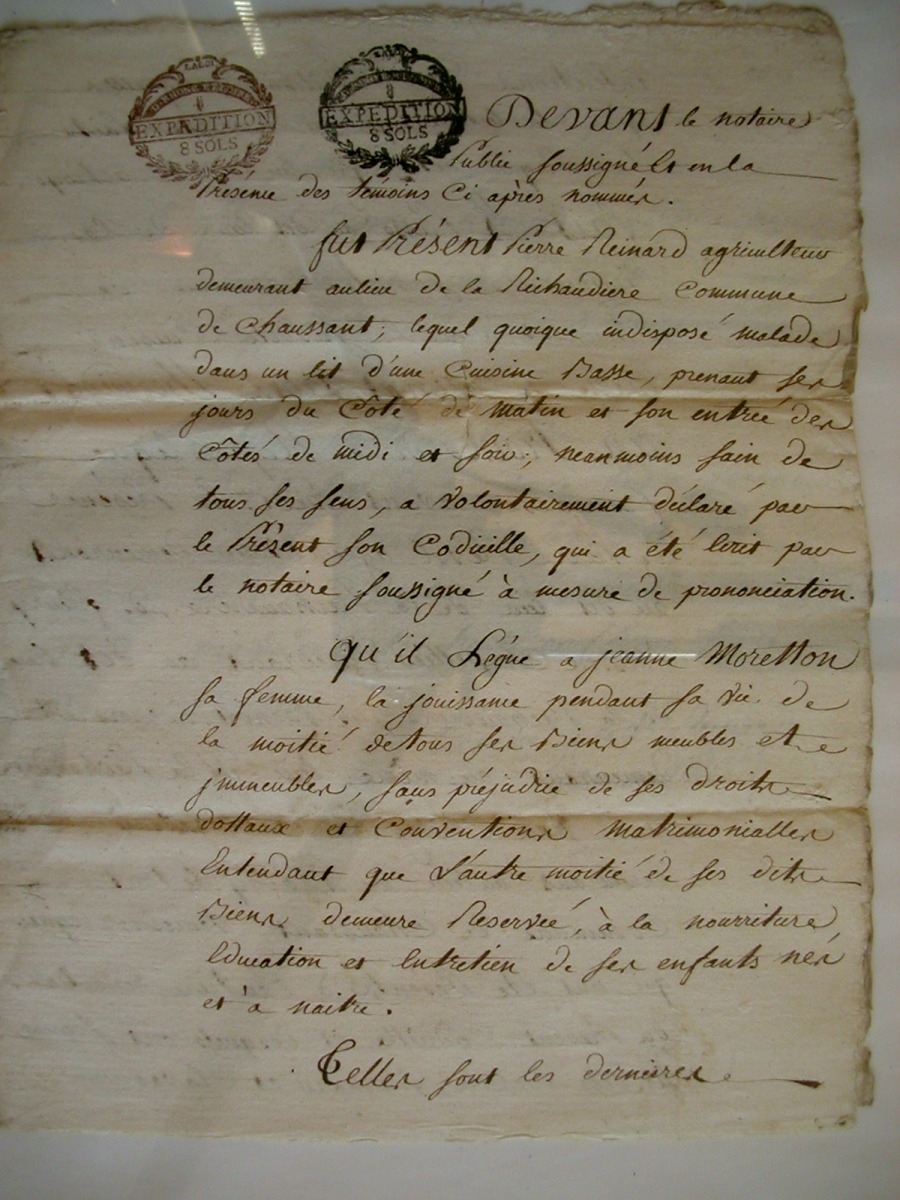 EXPEDITION
8 SOLS
EXPEDITION
8 SOLS
Devant le notaire
Public soussigné Et en la
Présence des témoins Ci après nommés.
fut Présent Pierre Reinard agriculteur
demeurant aulieu de la Richaudiere Commune
de Chaussant, lequel quoique indisposé malade
dans un lit d'une Cuisine Basse, prenant ses
jours du Côté de matin et son entrée des
Côtés de midi et soir, neanmoins sain de
tous ses sens, a volontairement déclaré par
le Présent son Codicille, qui a été Ecrit par
le notaire soussigné à mesure de prononciation.
qu'il Légue a jeanne Moretton
sa femme, la jouissance pendant sa vie de
la moitié detous ses Biens meubles et
jmmeubles, sans préjudice de ses droits
dottaux et Conventions Matrimonialles
Entendant que L'autre moitié de ses dits
Biens demeure Reservée, à la nourriture
Education et Entretien de ses enfants nés
et à naitre.
Telles sont les dernieres